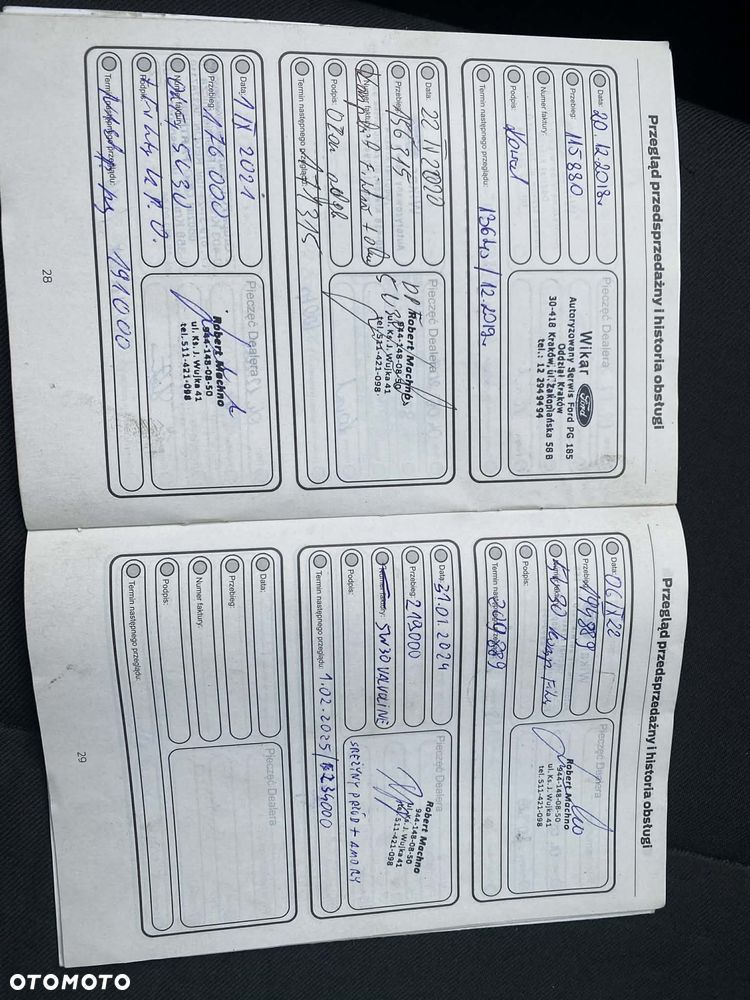 Przegląd przedsprzedażny i historia obsługi
Data: 20.12.2018r
Przebieg: 115880
Numer faktury:
Podpis:
Termin następnego przeglądu: /12.2019r
Pieczęć Dealera
Wikar
Ford
Autoryzowany Serwis Ford PG 185
Oddział Kraków
30-418 Kraków, ul. Zakopiańska 58 B
tel.: 12 2949494
Data: 22 IV 2020
Przebieg: 156315
Numer faktury:
Podpis:
Termin następnego przeglądu: 171315
Pieczęć Dealera
5W30
Robert Machno
944-148-08-50
ul. Ks. J. Wujka 41
tel. 511-421-098
Data: 1 IX 2021
Przebieg: 176000
Numer faktury: 5W30
Podpis:
Termin następnego przeglądu: 191000
Pieczęć Dealera
Robert Machno
944-148-08-50
ul. Ks. J. Wujka 41
tel. 511-421-098
28
Przegląd przedsprzedażny i historia obsługi
Data: 06 IX 22
Przebieg: 194889
Numer faktury: 5W30
Podpis:
Termin następnego przeglądu: 209889
Pieczęć Dealera
Robert Machno
944-148-08-50
ul. Ks. J. Wujka 41
tel. 511-421-098
Data: 31.01.2024
Przebieg: 219000
Numer faktury: 5W30 VALVOLINE
Podpis:
Termin następnego przeglądu: 1.02.2025/234000
Pieczęć Dealera
Robert Machno
944-148-08-50
ul. Ks. J. Wujka 41
tel. 511-421-098
SPRĘŻYNY PRZÓD + AMORY
Data:
Przebieg:
Numer faktury:
Podpis:
Termin następnego przeglądu:
Pieczęć Dealera
29
OTOMOTO